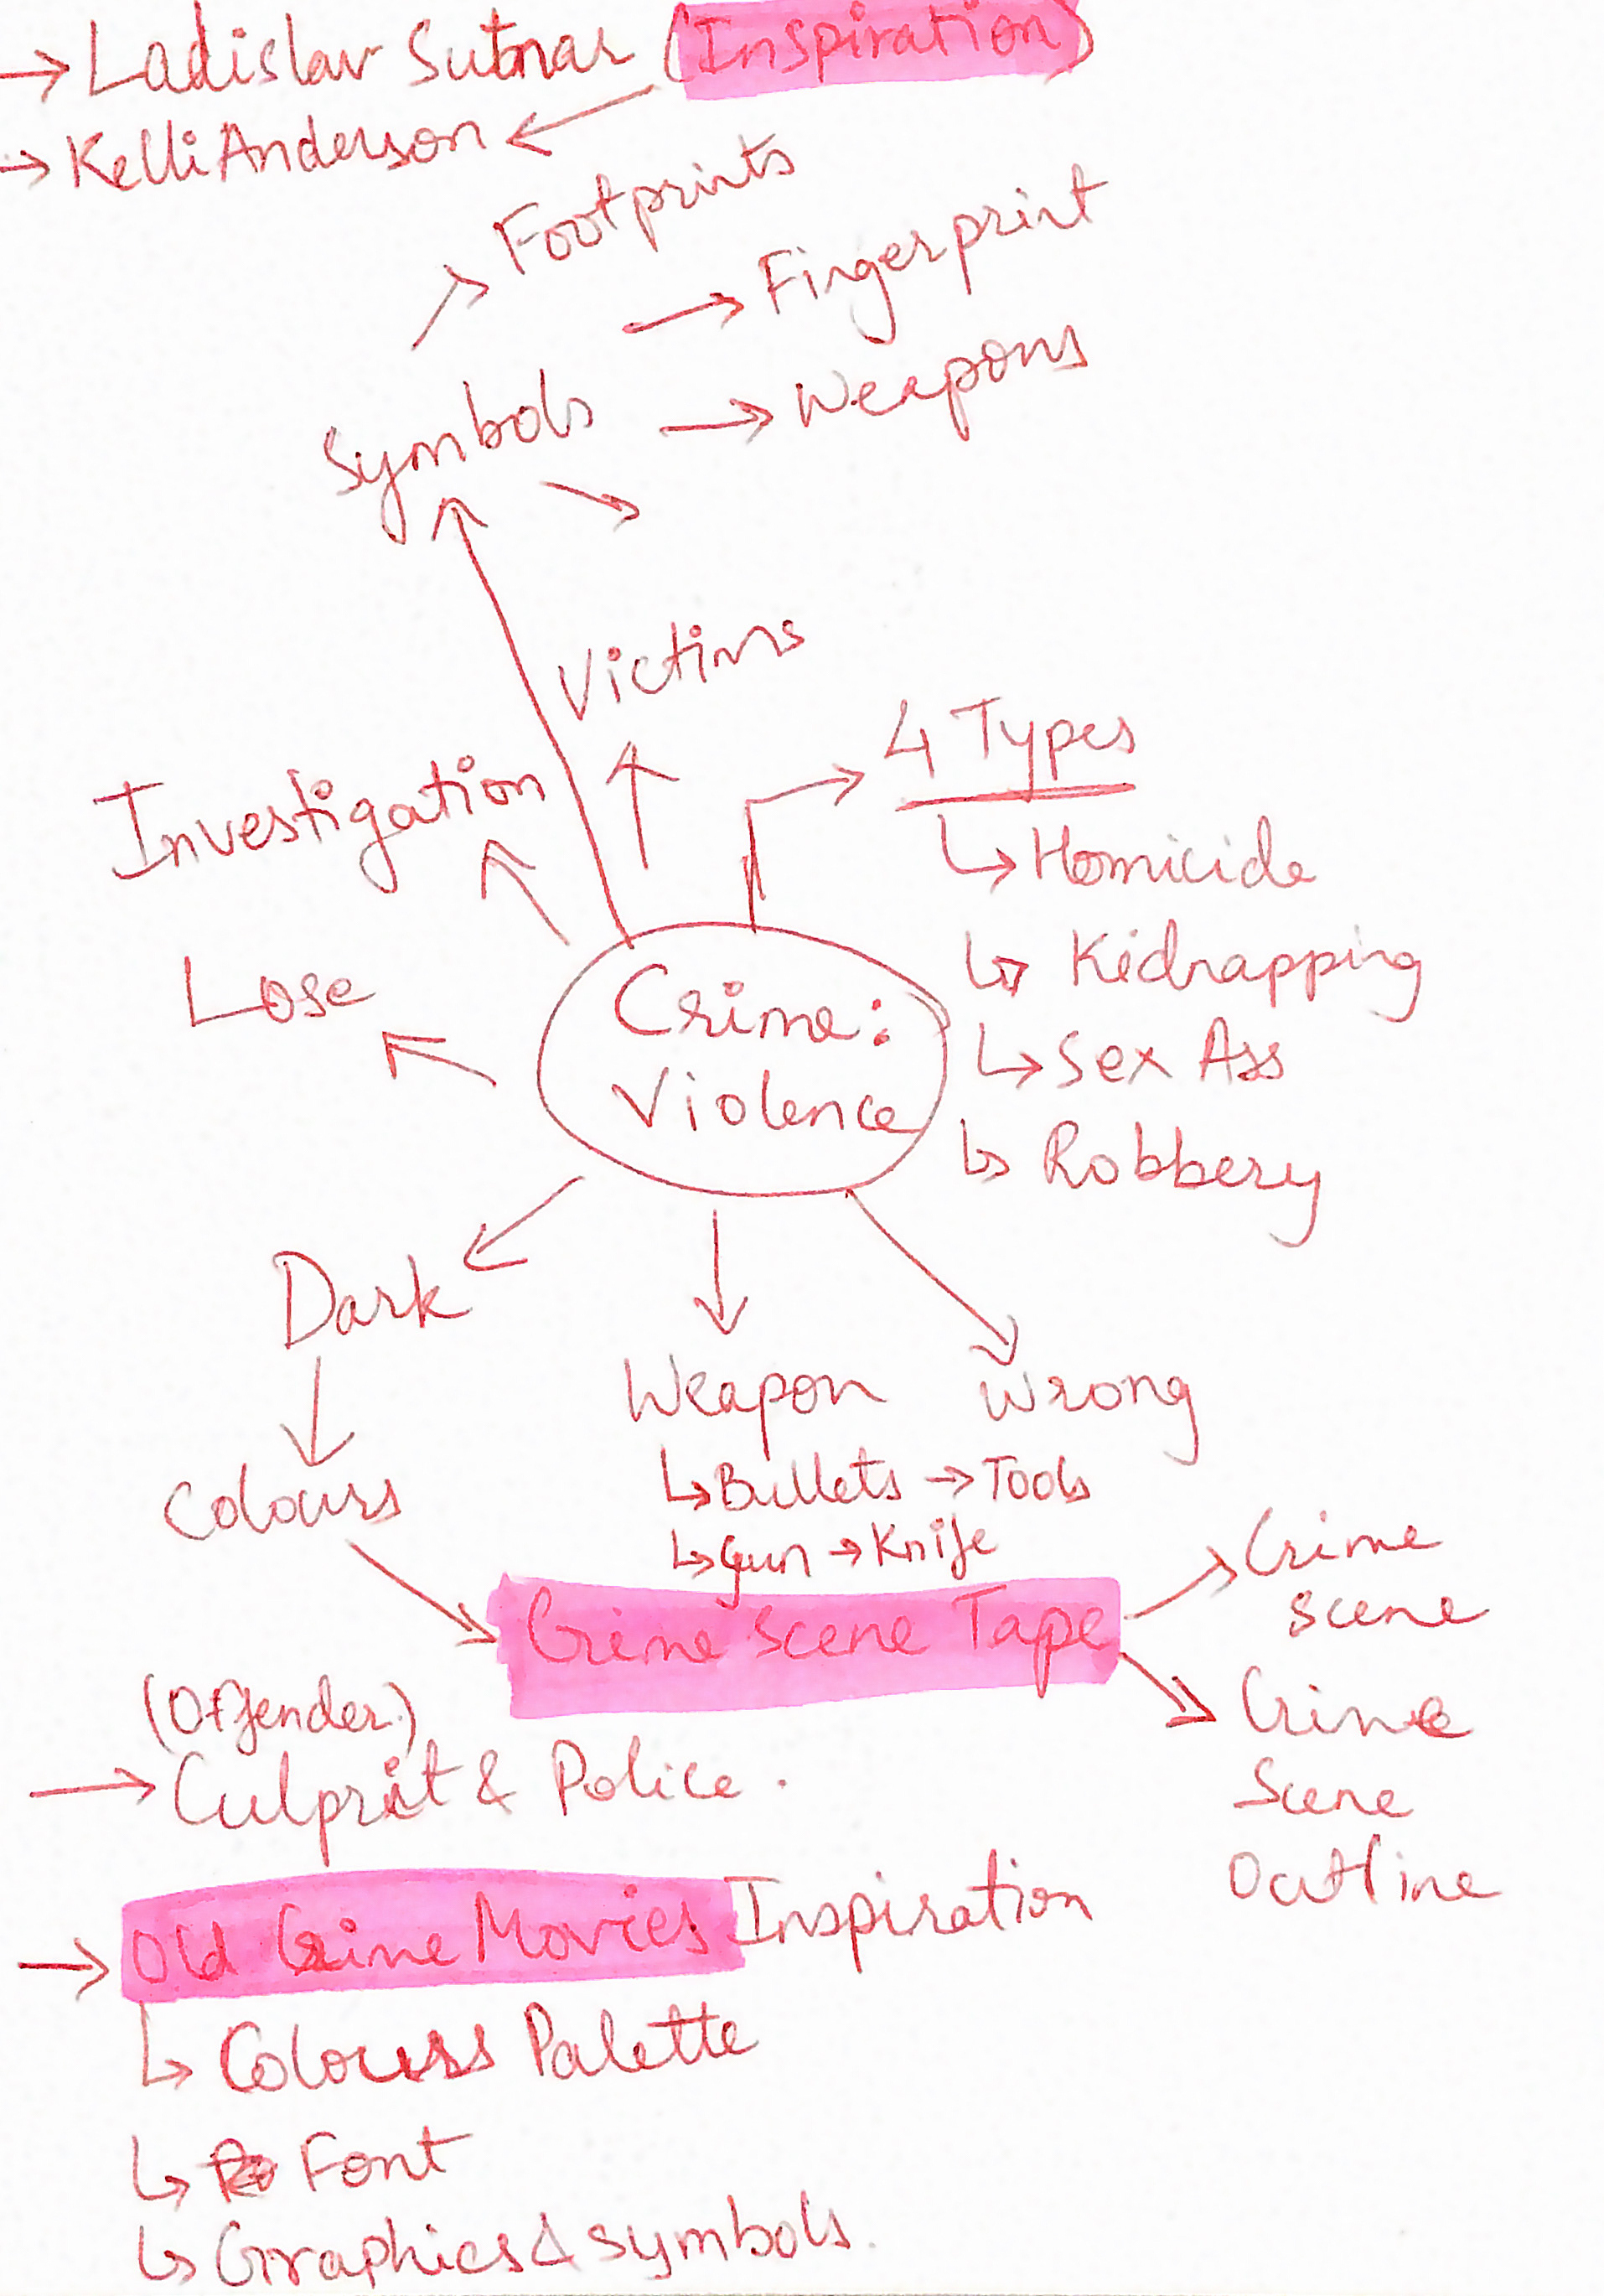 → Ladislav Sutnar (Inspiration)
→ Kelli Anderson ←
Footprints
→ Fingerprint
→ Weapons
Symbols
Victims
4 Types
Investigation
↳ Homicide
↳ Kidnapping
Lose
Crime:
Violence
↳ Sex Ass
↳ Robbery
Dark
Weapon
Wrong
Colours
↳ Bullets → Tools
↳ Gun → Knife
Crime Scene Tape
Crime
Scene
Crime
Scene
Outline
(Offender)
→ Culprit & Police.
→ Old Crime Movies Inspiration
↳ Colours Palette
↳ Font
↳ Graphics & symbols.